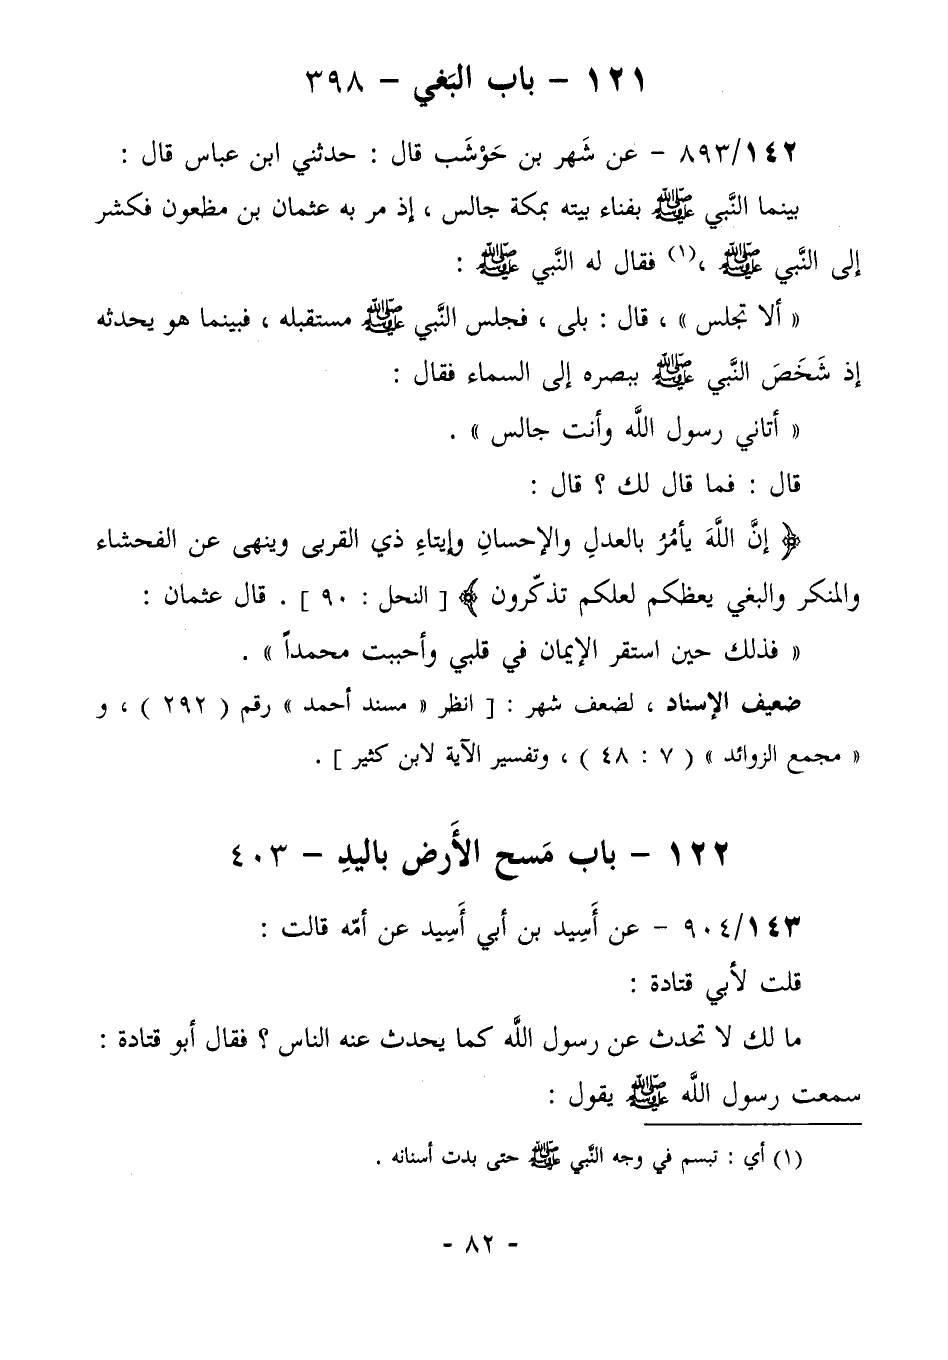 ١٢١ - باب البَغي - ٣٩٨
٨٩٣/١٤٢ - عن شَهر بن حَوْشَب قال : حدثني ابن عباس قال :
بينما النَّبي ﷺ بفناء بيته بمكة جالس ، إذ مر به عثمان بن مظعون فكشر
إلى النَّبي ﷺ ،(١) فقال له النَّبي ﷺ :
« ألا تجلس » ، قال : بلى ، فجلس النَّبي ﷺ مستقبله ، فبينما هو يحدثه
إذ شَخَصَ النَّبي ﷺ ببصره إلى السماء فقال :
« أتاني رسول اللَّه وأنت جالس » .
قال : فما قال لك ؟ قال :
﴿ إنَّ اللَّهَ يأمُرُ بالعدلِ والإحسانِ وإيتاءِ ذي القربى وينهى عن الفحشاء
والمنكر والبغي يعظكم لعلكم تذكّرون ﴾ [ النحل : ٩٠ ] . قال عثمان :
« فذلك حين استقر الإيمان في قلبي وأحببت محمداً » .
ضعيف الإسناد ، لضعف شهر : [ انظر « مسند أحمد » رقم ( ٢٩٢ ) ، و
« مجمع الزوائد » ( ٧ : ٤٨ ) ، وتفسير الآية لابن كثير ] .
١٢٢ - باب مَسح الأَرض باليدِ - ٤٠٣
٩٠٤/١٤٣ - عن أَسِيد بن أبي أَسِيد عن أمّه قالت :
قلت لأبي قتادة :
ما لك لا تحدث عن رسول اللَّه كما يحدث عنه الناس ؟ فقال أبو قتادة :
سمعت رسول اللَّه ﷺ يقول :
(١) أي : تبسم في وجه النَّبي ﷺ حتى بدت أسنانه .
- ٨٢ -